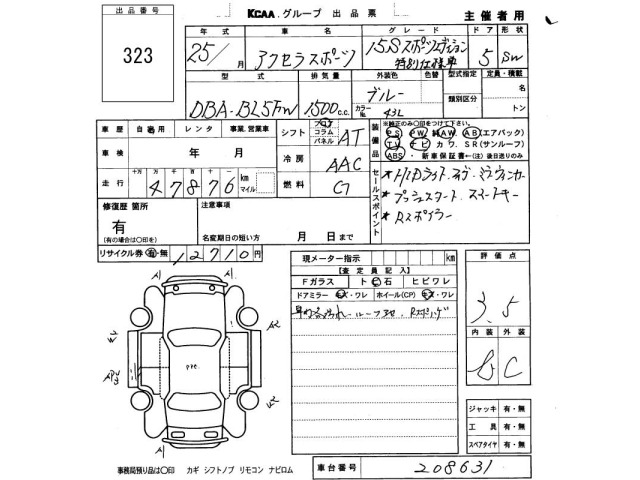 出品番号
323
KCAA.グループ 出品票
主催者用
年式 車名 グレード ドア 形
25/月 アクセラスポーツ 15S スポーツエディション 特別仕様車 5 SW
型式 排気量 外装色 色替 型式指定 定員・積載
DBA-BL5FW 1500c.c. ブルー 類別区分 名
カラーNo. 43L トン
車歴 自家用 レンタ 事業.営業車
シフト コラム パネル AT
車検 年 月
冷房 AAC
走行 十万 万 千 百 十 47876 km マイル
燃料 G
装備品 ※純正のみ○印をつけて下さい。
PS PW 純AW AB(エアバック)
TV ナビ カワ SR(サンルーフ)
ABS ・新車保証書←(注)後日送りのみ
セールスポイント
★HIDライト
★プッシュスタート スマートキー
★Rスポイラー
修復歴 箇所
有
(有の場合は○印を)
注意事項
名変期日の短い方 月 日まで
リサイクル券 有・無 12710円
現メーター指示 km
【査定員記入】
Fガラス ト 石 ヒビワレ
ドアミラー キズ・ワレ ホイール(CP) キズ・ワレ
評価点
3.5
内装 外装
C
ジャッキ 有・無
工具 有・無
スペアタイヤ 有・無
事務局預り品は○印 カギ シフトノブ リモコン ナビロム
車台番号 208631